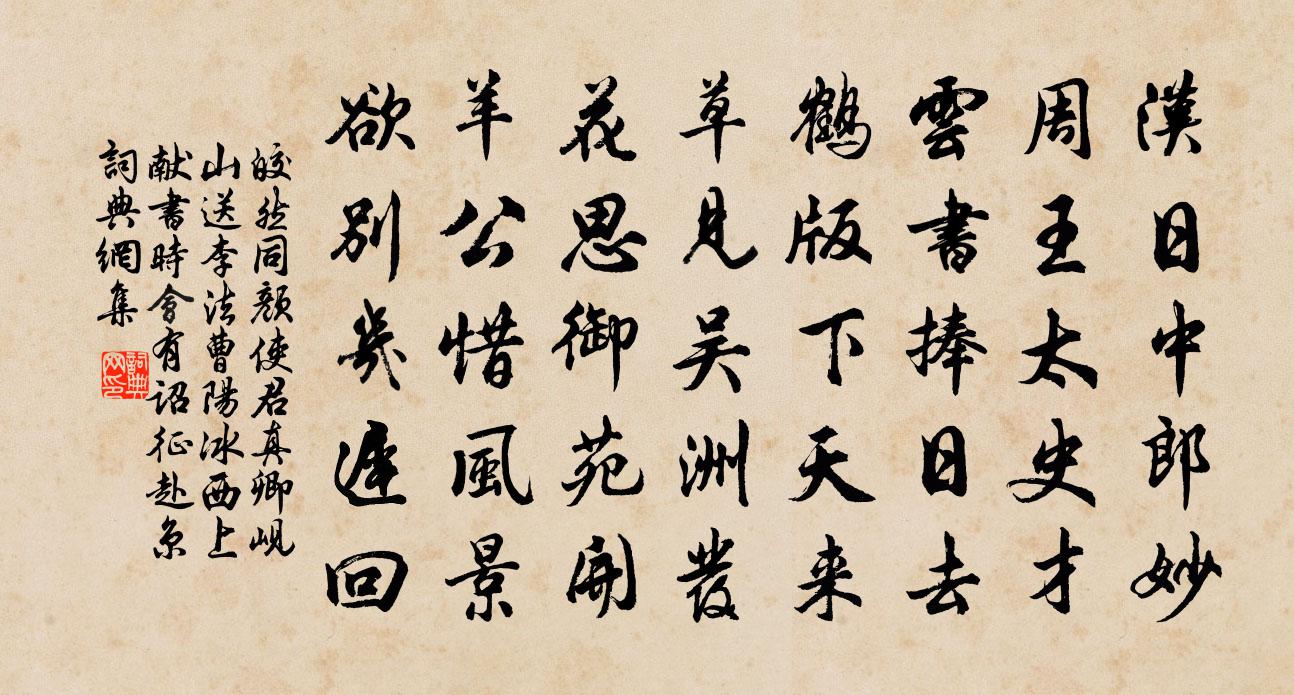 漢日中郎妙
周王太史才
雲書捧日去
鶴版下天来
草見吴洲發
花思御苑開
羊公惜風景
欲别幾遲回
皎然同顔使君真卿峴
山送李法曹陽冰西上
献書時會有詔征赴京
詞典網集
詞典网印